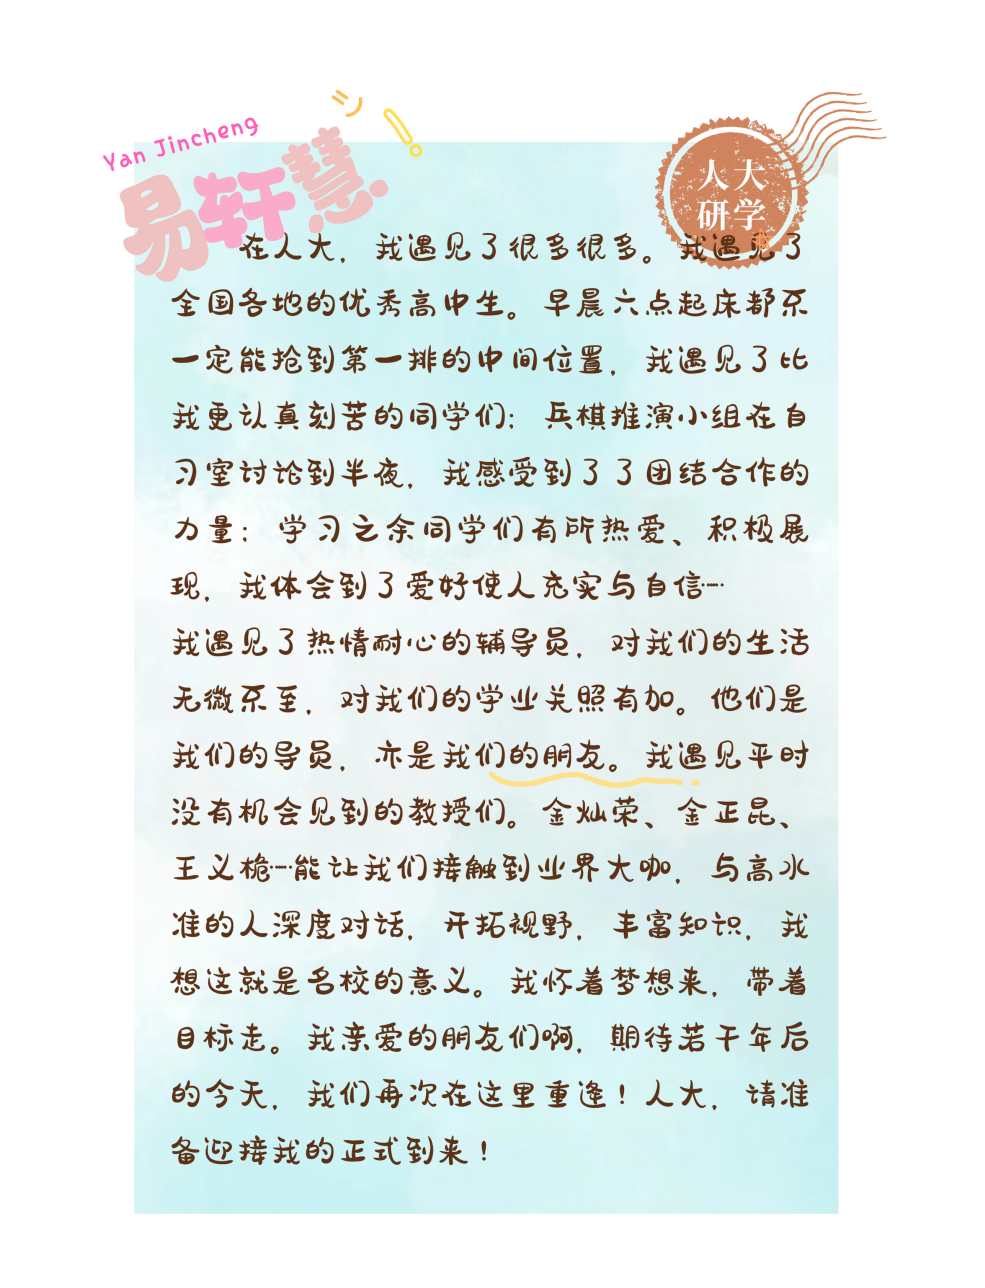 Yan Jincheng
易轩慧
人大
研学
在人大，我遇见了很多很多。我遇见了
全国各地的优秀高中生。早晨六点起床都不
一定能抢到第一排的中间位置，我遇见了比
我更认真刻苦的同学们；兵棋推演小组在自
习室讨论到半夜，我感受到了了团结合作的
力量；学习之余同学们有所热爱、积极展
现，我体会到了爱好使人充实与自信……
我遇见了热情耐心的辅导员，对我们的生活
无微不至，对我们的学业关照有加。他们是
我们的导员，亦是我们的朋友。我遇见平时
没有机会见到的教授们。金灿荣、金正昆、
王义桅……能让我们接触到业界大咖，与高水
准的人深度对话，开拓视野，丰富知识，我
想这就是名校的意义。我怀着梦想来，带着
目标走。我亲爱的朋友们啊，期待若干年后
的今天，我们再次在这里重逢！人大，请准
备迎接我的正式到来！